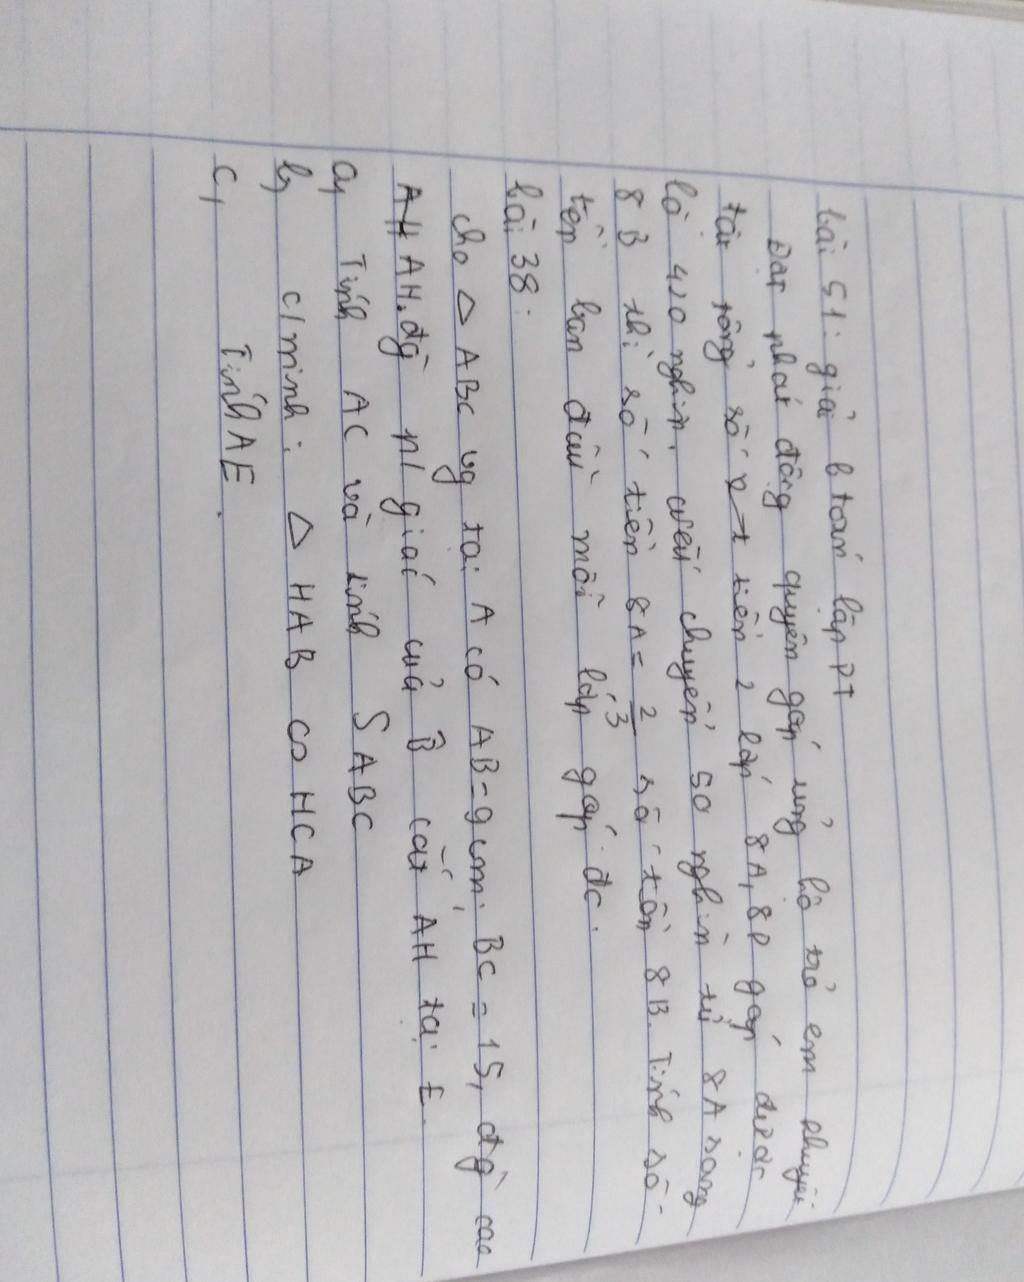 bài 51: giải b toán lập PT
Đợt phát động quyên góp ủng hộ trẻ em khuyết
tật tổng số tiền 2 lớp 8A, 8B góp được
là 420 nghìn, nếu chuyển 50 nghìn từ 8A sang
8B thì số tiền 8A = 2/3 số tiền 8B. Tính số
tiền ban đầu mỗi lớp góp đc.
bài 38:
cho △ ABC vg tại A có AB=9cm; BC = 15, đg cao
AH, đg p/giác của B̂ cắt AH tại E.
a, Tính AC và tính SABC
b, c/minh: △ HAB ∽ HCA
c, Tính AE.